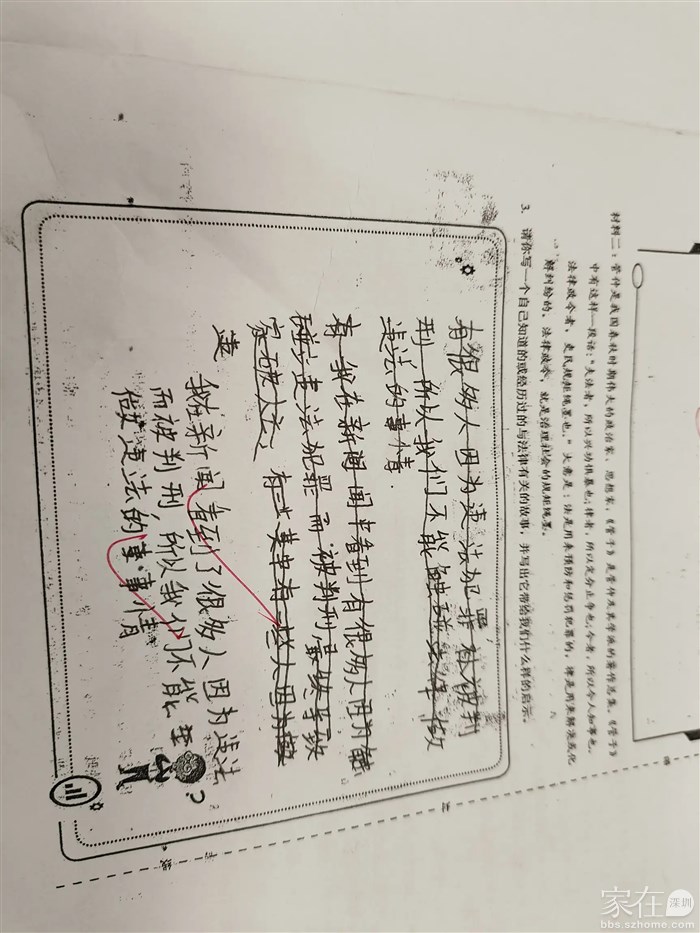 材料二：管仲是我国春秋时期伟大的政治家、思想家，《管子》是管仲及其学派的著作总集。《管子》
中有这样一段话：“夫法者，所以兴功惧暴也；律者，所以定分止争也；令者，所以令人知事也。
法律政令者，吏民规矩绳墨也。”大意是：法是用来预防和惩罚犯罪的，律是用来解决或化
解纠纷的，法律政令，就是治理社会的规矩绳墨。
3. 请你写一个自己知道的或经历过的与法律有关的故事，并写出它带给我们什么样的启示。
有很多人因为违法犯罪 被判
刑 所以我们不能触碰法律 做
违法的事情
有 我在新闻 看到有很多人因为
碰违法犯罪而被判刑最终导致
家破人亡 有些 有一些人因为
违
我在新闻看到了很多人因为违法
而被判刑，所以我们不能
做违法的事情
线
家在 深圳
bbs.szhome.com